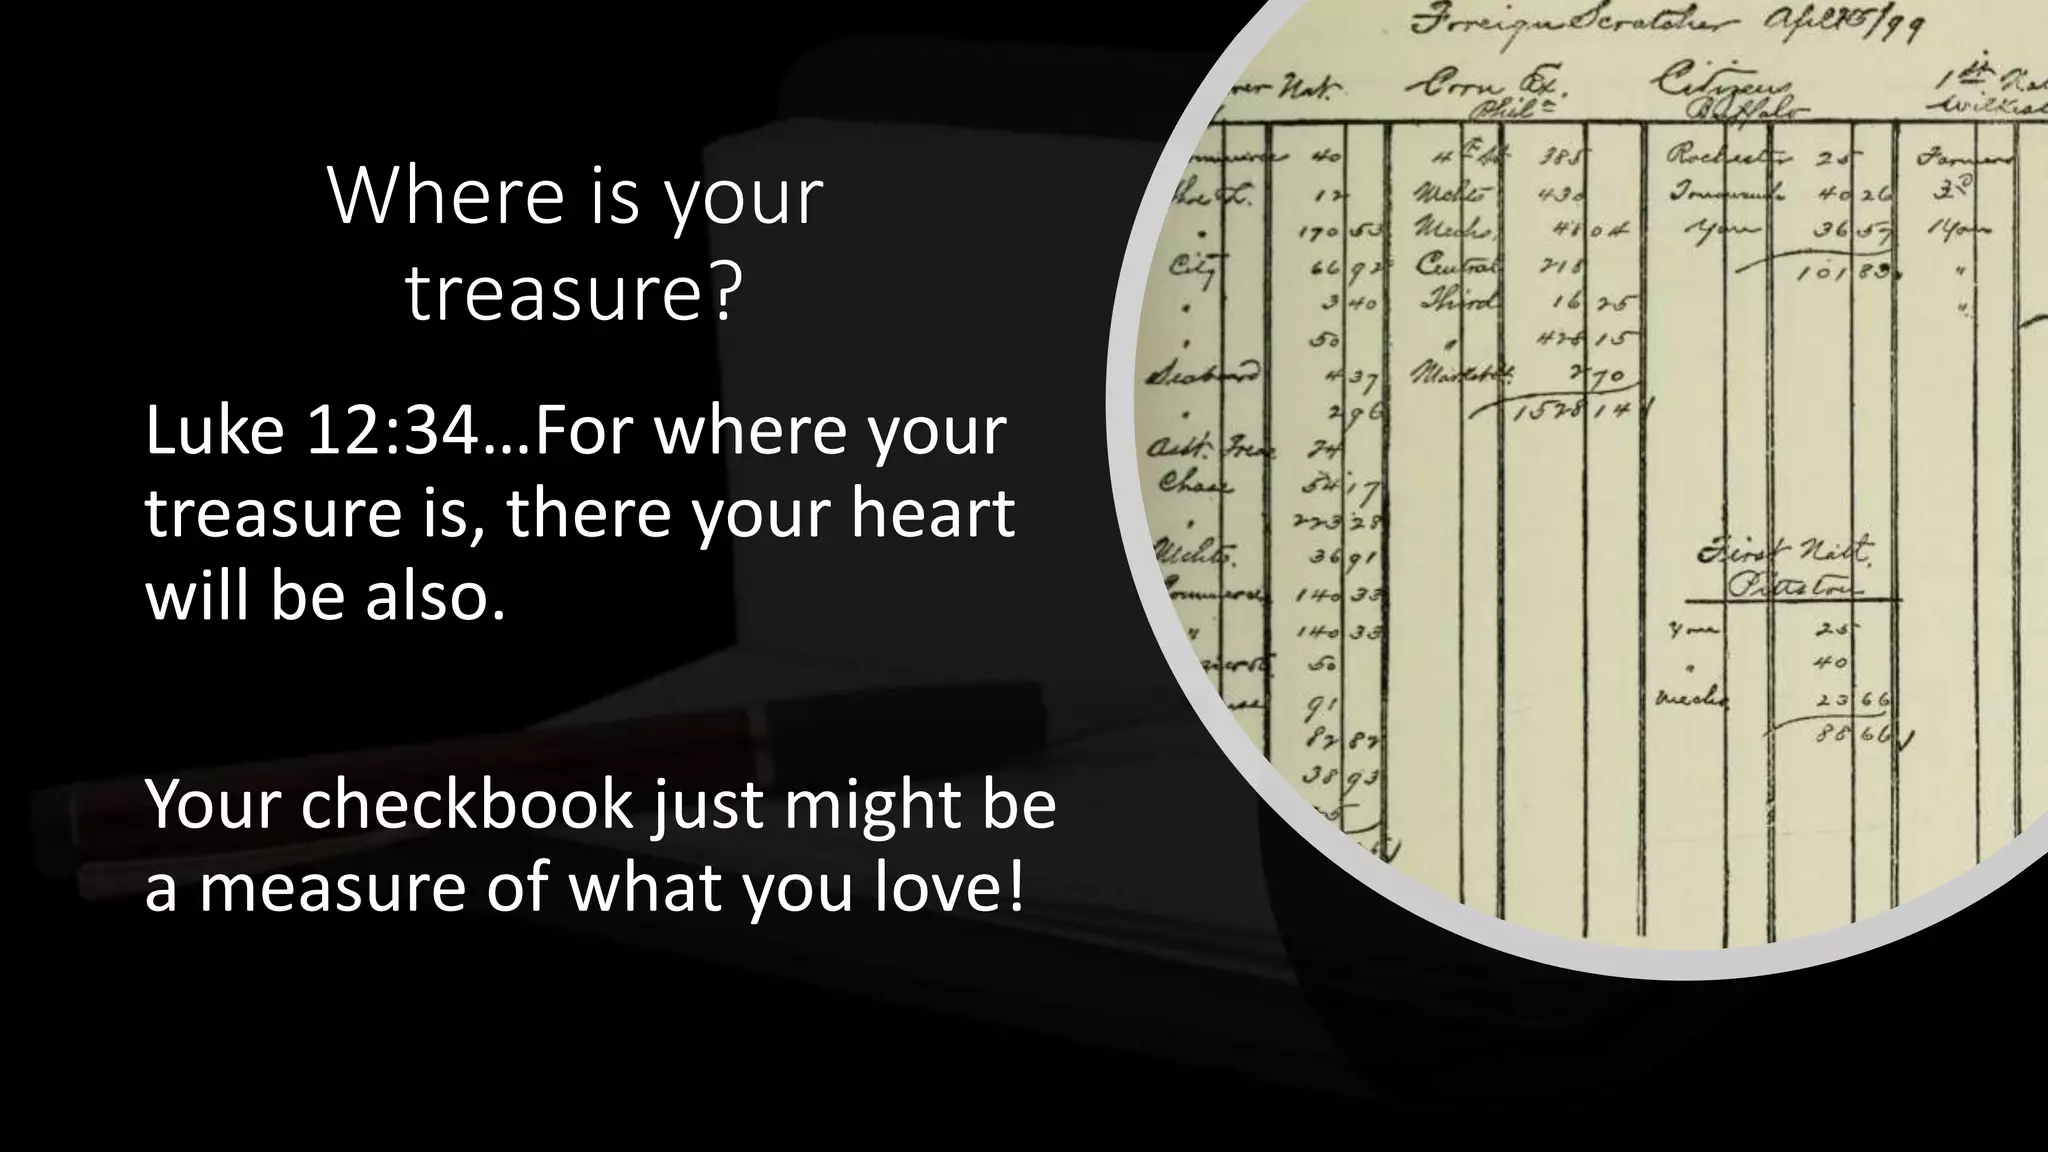 Where is your
treasure?
Luke 12:34...For where your
treasure is, there your heart
will be also.
Your checkbook just might be
a measure of what you love!
Foreign Scratcher April 25/99
Nat. Corn Ex. Citizens 1st Nat
Phila Buffalo Wilkes
40 4th St 385 Rochester 25 Farmers
12 Mchts 430 Tonawanda 40 26 3rd
" 170 53 Mechs. 48 04 You 36 57 You
City 66 92 Central 218 101 83 "
" 3 40 Third 16 25 "
" 50 " 428 15
Seaboard 4 37 Market St. 2 70
" 2 96 1528 14
Asst. Treas 74
Chase 54 17
" 223 28
Mchts. 36 91 First Natl.
140 33 Pittston
" 140 33 You 25
50 " 40
91 Mechs 23 66
82 82 88 66
38 93